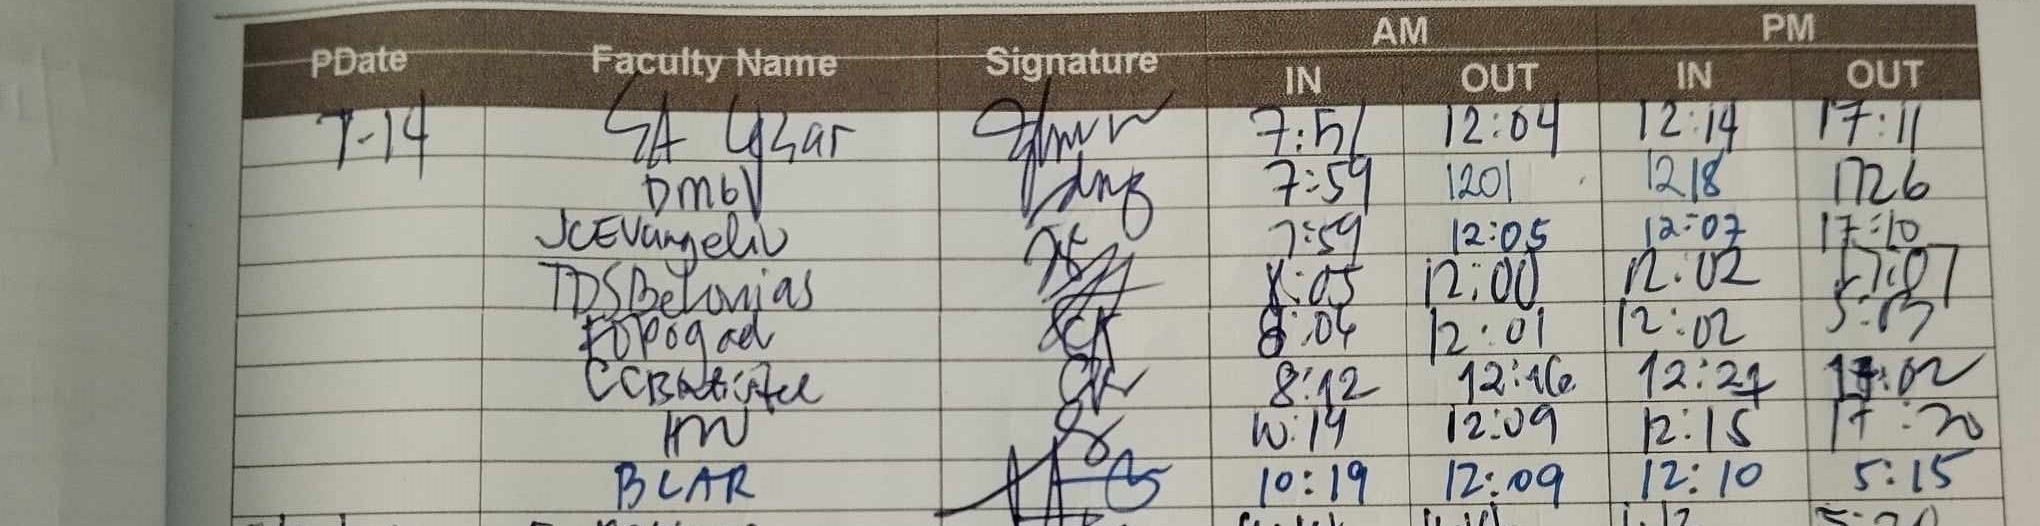 AM PM
PDate Faculty Name Signature IN OUT IN OUT
7-14 SA Yzar 7:51 12:04 12:14 17:11
DMbV 7:59 1201 1218 1726
JCEVangeliO 7:59 12:05 12:07 17:10
TDSBelonias 8:05 12:00 12:02 17:07
FDPogad 8:04 12:01 12:02 5:03
CCBautista 8:12 12:16 12:21 17:02
10:19 12:09 12:15 17:20
BLAR 10:19 12:09 12:10 5:15